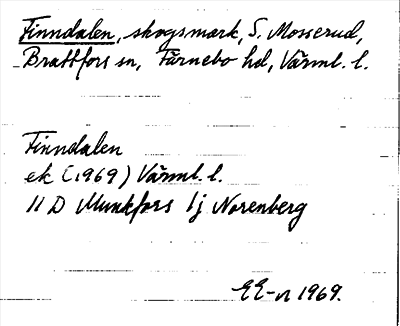 Finndalen, skogsmark, S. Mosserud,
Brattfors sn, Färnebo hd, Värml. l.
Finndalen
ek (1969) Värml. l.
11 D Munkfors 1j Norenberg
EE-n 1969.